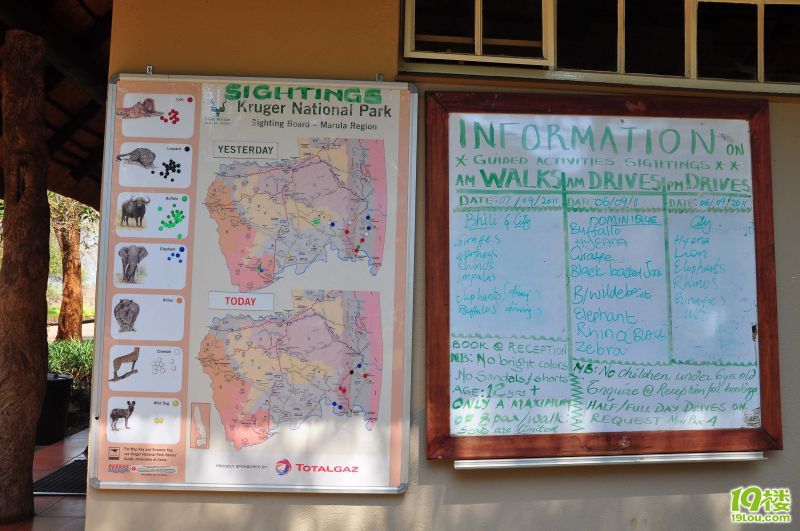 SIGHTINGS
Kruger National Park
Sighting Board – Marula Region
Lion
Leopard
Buffalo
Elephant
Rhino
Cheetah
Wild Dog
YESTERDAY
TODAY
PROUDLY SPONSORED BY TOTALGAZ
INFORMATION ON
* GUIDED ACTIVITIES SIGHTINGS * *
AM WALKS
DATE: 07/09/2011
Giraffes
Rhinos
Impalas
Elephants
Buffalos
AM DRIVES
DATE: 06/09/11
DOMINIQUE
Buffallo
HYEANA
Giraffe
Black backed Jack
B/wildebeest
elephant
Rhino BLACK
Zebra
PM DRIVES
DATE: 06/09/2011
City
Hyena
Lion
Elephants
Rhinos
Giraffes
BOOK @ RECEPTION
NB: No bright colors
No Sandals/shorts
AGE: 12yrs+
ONLY A MAXIMUM
OF 8 pax/walk
Seats are limited
NB: No children under 6yrs old
Enquire @ Reception for bookings
HALF/FULL DAY DRIVES ON
REQUEST Min Pax 4
19楼
19lou.com